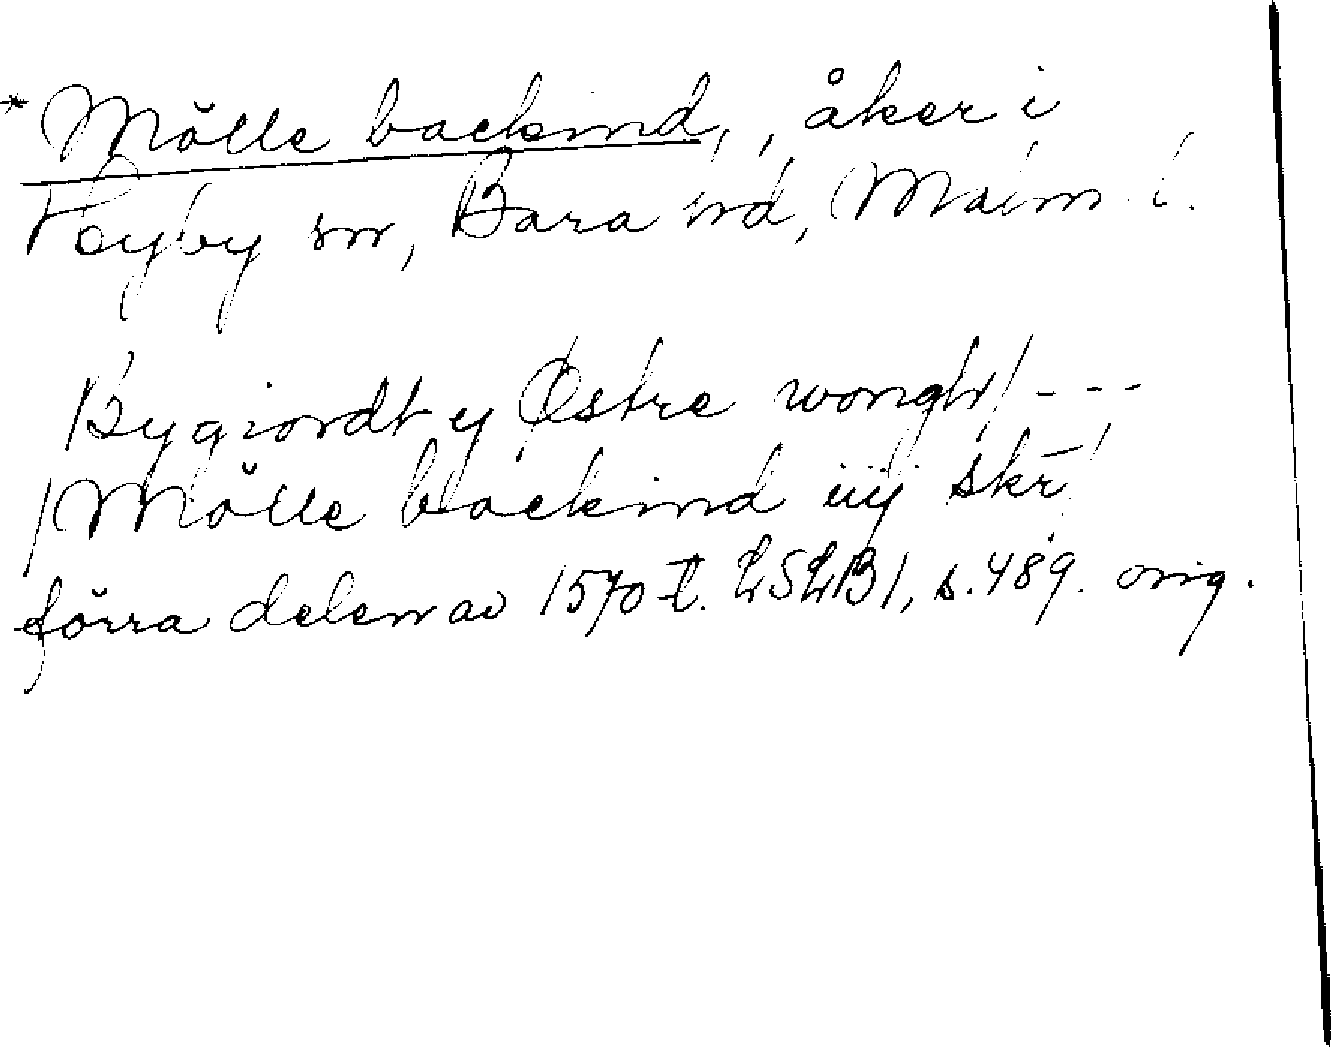 *Mölle backind, åker i
Hyby sn, Bara hd, Malm. l.
Bygiordt y Østre wongh / ---
/ Mölle backind iiij skr̄ /
förra delen av 1570-t. LSLB 1, s. 489. orig.